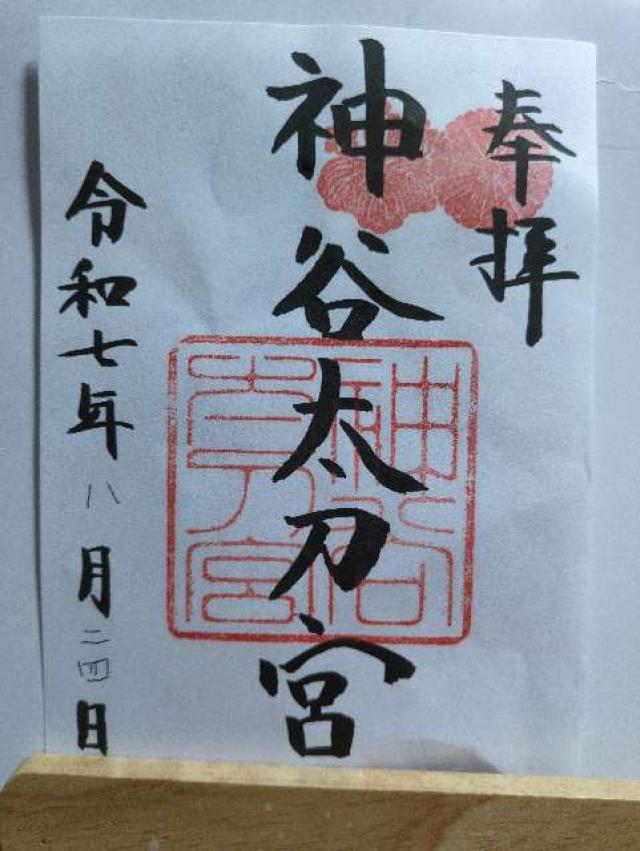 奉拝
神谷太刀宮
神谷
太刀宮
令和七年八月二四日